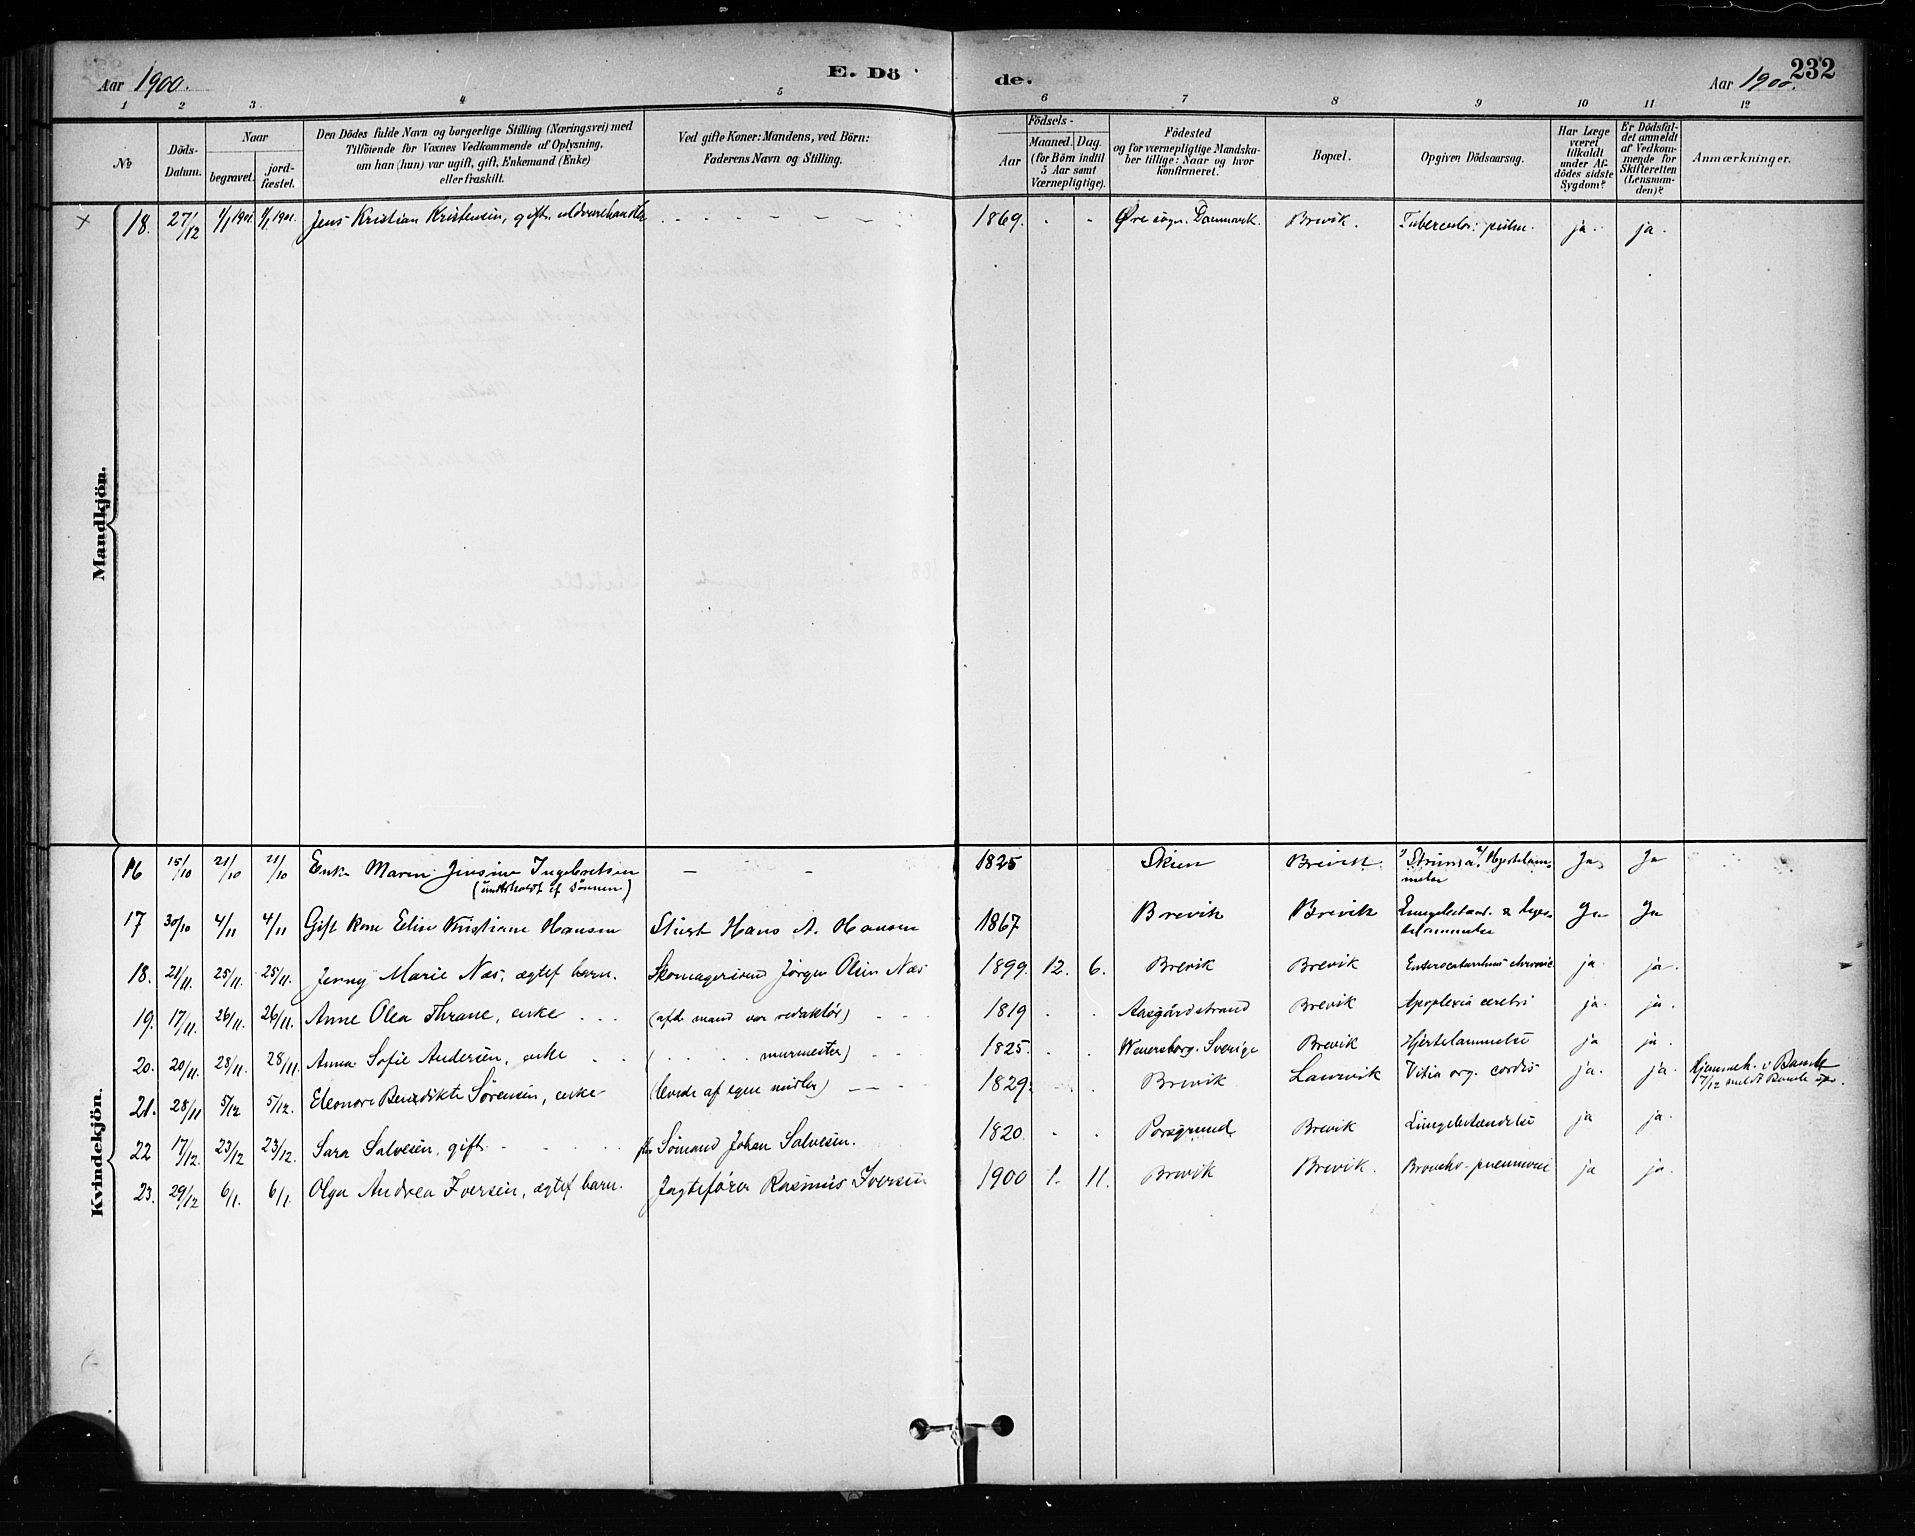 Aar 1900. E. Dö de. Aar 1900. 232
1 2 3 4 5 6 7 8 9 10 11 12
No
Döds-Datum.
Naar
begravet.
jord-fæstet.
Den Dödes fulde Navn og borgerlige Stilling (Næringsvei) med
Tilföiende for Voxnes Vedkommende af Oplysning,
om han (hun) var ugift, gift, Enkemand (Enke)
eller fraskilt.
Ved gifte Koner: Mandens, ved Börn:
Faderens Navn og Stilling.
Födsels-
Aar
Maaned. Dag.
(for Börn indtil
5 Aar samt
Værnepligtige).
Födested
og for værnepligtige Mandska-
ber tillige: Naar og hvor
konfirmeret.
Bopæl.
Opgiven Dödsaarsag.
Har Læge
været
tilkaldt
under Af-
dödes sidste
Sygdom?
Er Dödsfal-
det anmeldt
af Vedkom-
mende for
Skifteretten
(Lensman-
den)?
Anmærkninger.
Mandkjön.
18. 27/12 Jens Kristian Kristensen, gift. 1869. Øre sogn. Danmark. Brevik. Tuberculos: pulm. ja. ja.
Kvindekjön.
16 15/10 21/10 21/10 Enke Maren Jensine Ingebretsen - - 1825 Skien Brevik Struma Hjertelam- Ja Ja
(underholdt af Sönnen) melse
17 30/10 4/11 4/11 Gift kone Elin Kristiane Hansen Stuert Hans A. Hansen 1867 Brevik Brevik Ja Ja
18. 21/11. 25/11. 25/11. Jenny Marie Næs, ægtef barn. Skomagersvend Jørgen Olsen Næs 1899. 12. 6. Brevik Brevik ja. ja.
19. 17/11. 26/11. 26/11. Anne Olea Thrane, enke (afd. mand var redaktör) 1819 Aasgårdstrand Brevik Apoplexia cerebri ja. ja.
20. 20/11. 28/11. 28/11. Anna Sofie Andersen, enke ( . . . . murmester) 1825. Wenersborg. Sverige Brevik Hjertelammelse ja ja.
21. 28/11 5/12 5/12. Eleonore Benedikte Sørensen, enke (levede af egne midler) 1829. Brevik Laurvik Vitia org. cordis ja. ja.
22 17/12. 23/12 23/12. Sara Salvesen, gift Sømand Johan Salvesen. 1820. Porsgrund Brevik Lungebetændelse ja ja.
23. 29/12 6/1. 6/1. Olga Andrea Iversen, ægtef barn. Jagtefører Rasmus Iversen 1900 1. 11. Brevik Brevik. Broncho-pneumoni ja ja.